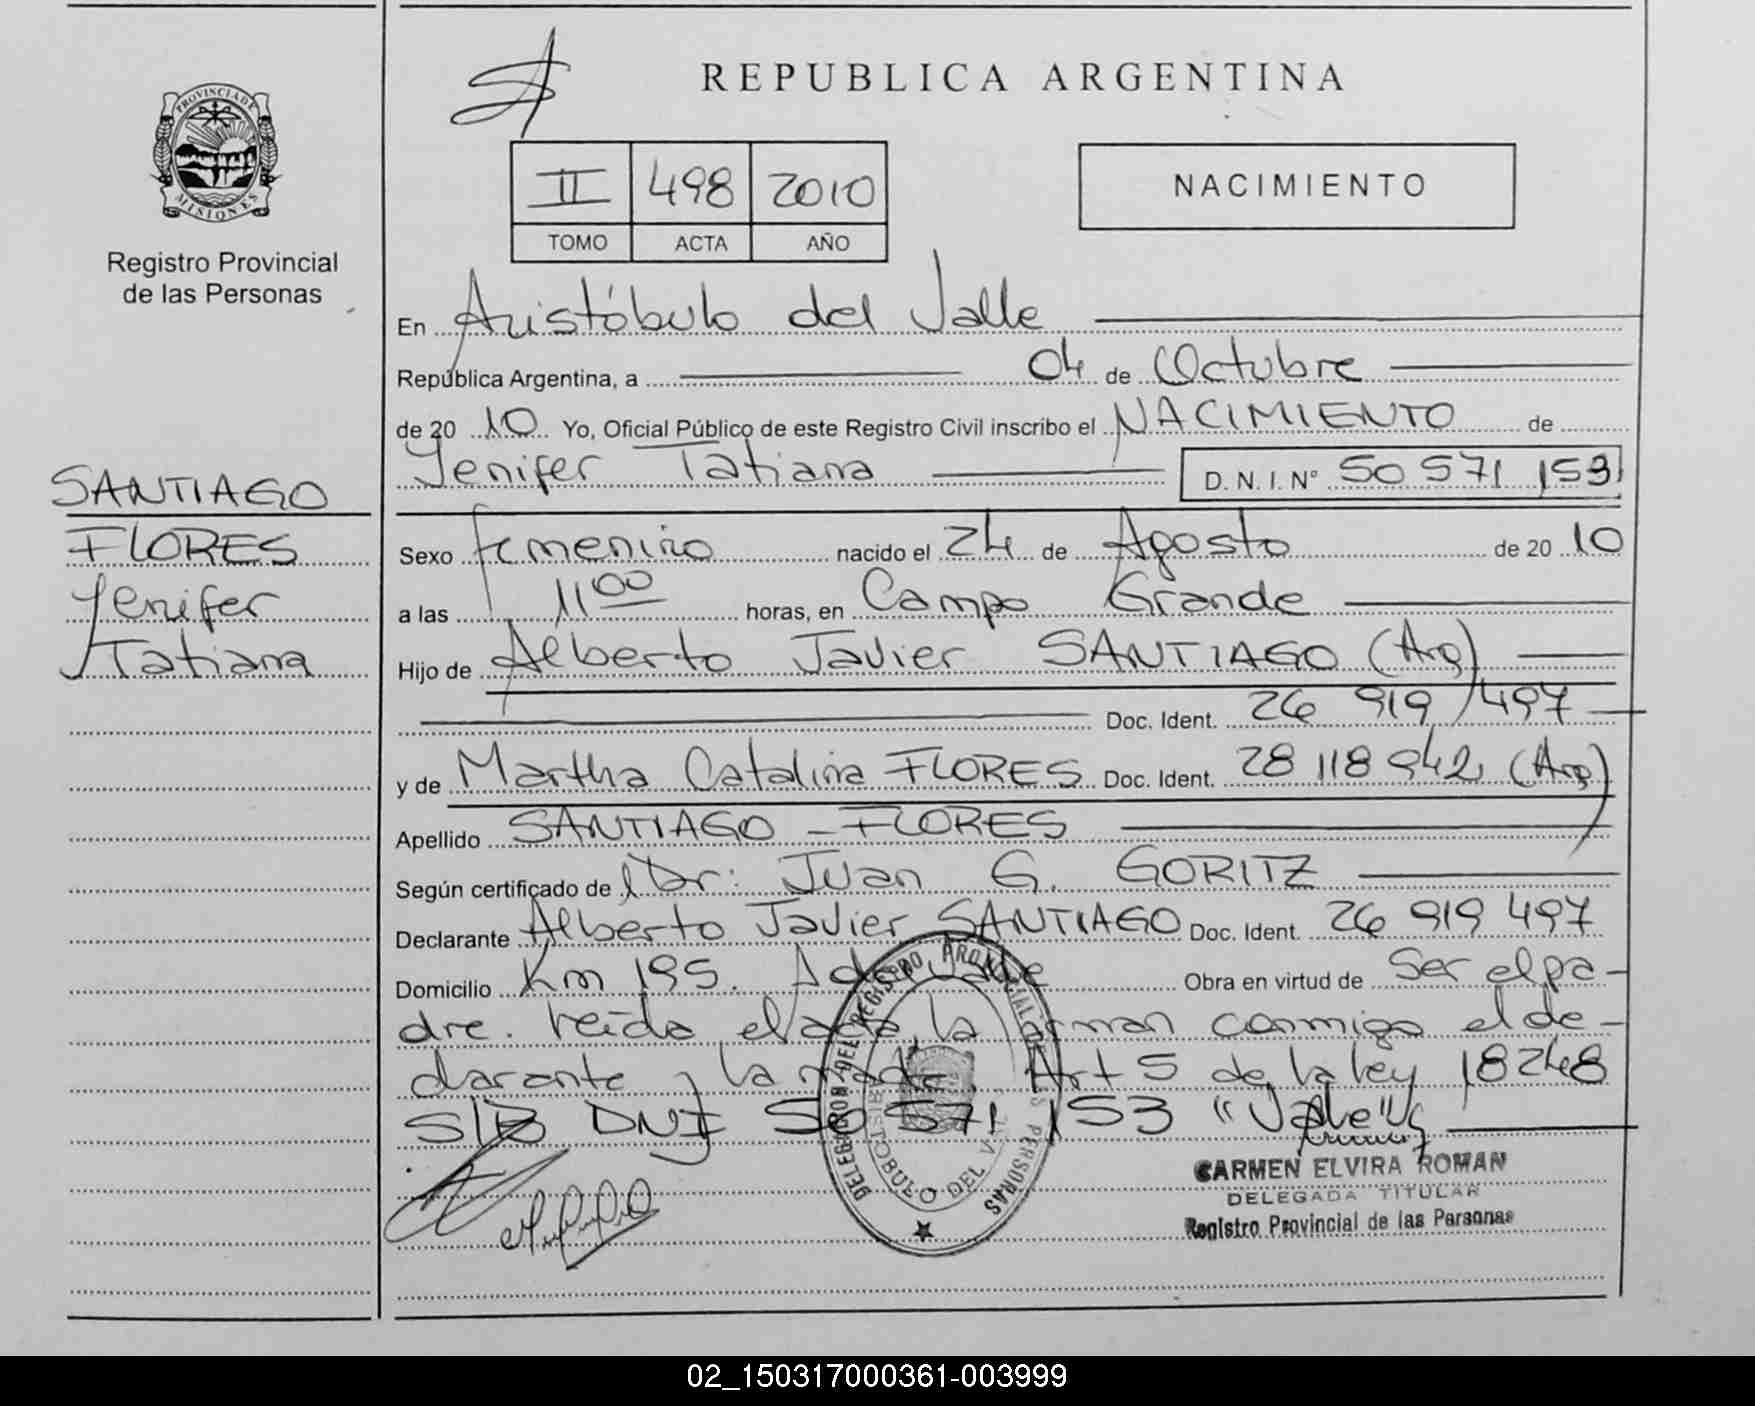 REPUBLICA ARGENTINA
PROVINCIA DE
MISIONES
Registro Provincial
de las Personas
II 498 2010
TOMO ACTA AÑO
NACIMIENTO
SANTIAGO
FLORES
Yenifer
Tatiana
En Aristóbulo del Valle
República Argentina, a 04 de Octubre
de 20 10 Yo, Oficial Público de este Registro Civil inscribo el NACIMIENTO de
Yenifer Tatiana D. N. I. N° 50 571 153
Sexo femenino nacido el 24 de Agosto de 20 10
a las 11 00 horas, en Campo Grande
Hijo de Alberto Javier SANTIAGO (Arg)
Doc. Ident. 26 919 497
y de Martha Catalina FLORES Doc. Ident. 28 118 942 (Arg)
Apellido SANTIAGO - FLORES
Según certificado de Dr: Juan G. GORITZ
Declarante Alberto Javier SANTIAGO Doc. Ident. 26 919 497
Domicilio Km 195. A del Valle Obra en virtud de Ser el pa-
dre. leída el acta la firman conmigo el de-
clarante y la madre. Art 5 de la ley 18248
S/B DNI 50 571 153 "Vale"
DELEGACION DEL REGISTRO PROVINCIAL DE LAS PERSONAS
ARISTOBULO DEL VALLE
CARMEN ELVIRA ROMAN
DELEGADA TITULAR
Registro Provincial de las Personas
02_150317000361-003999